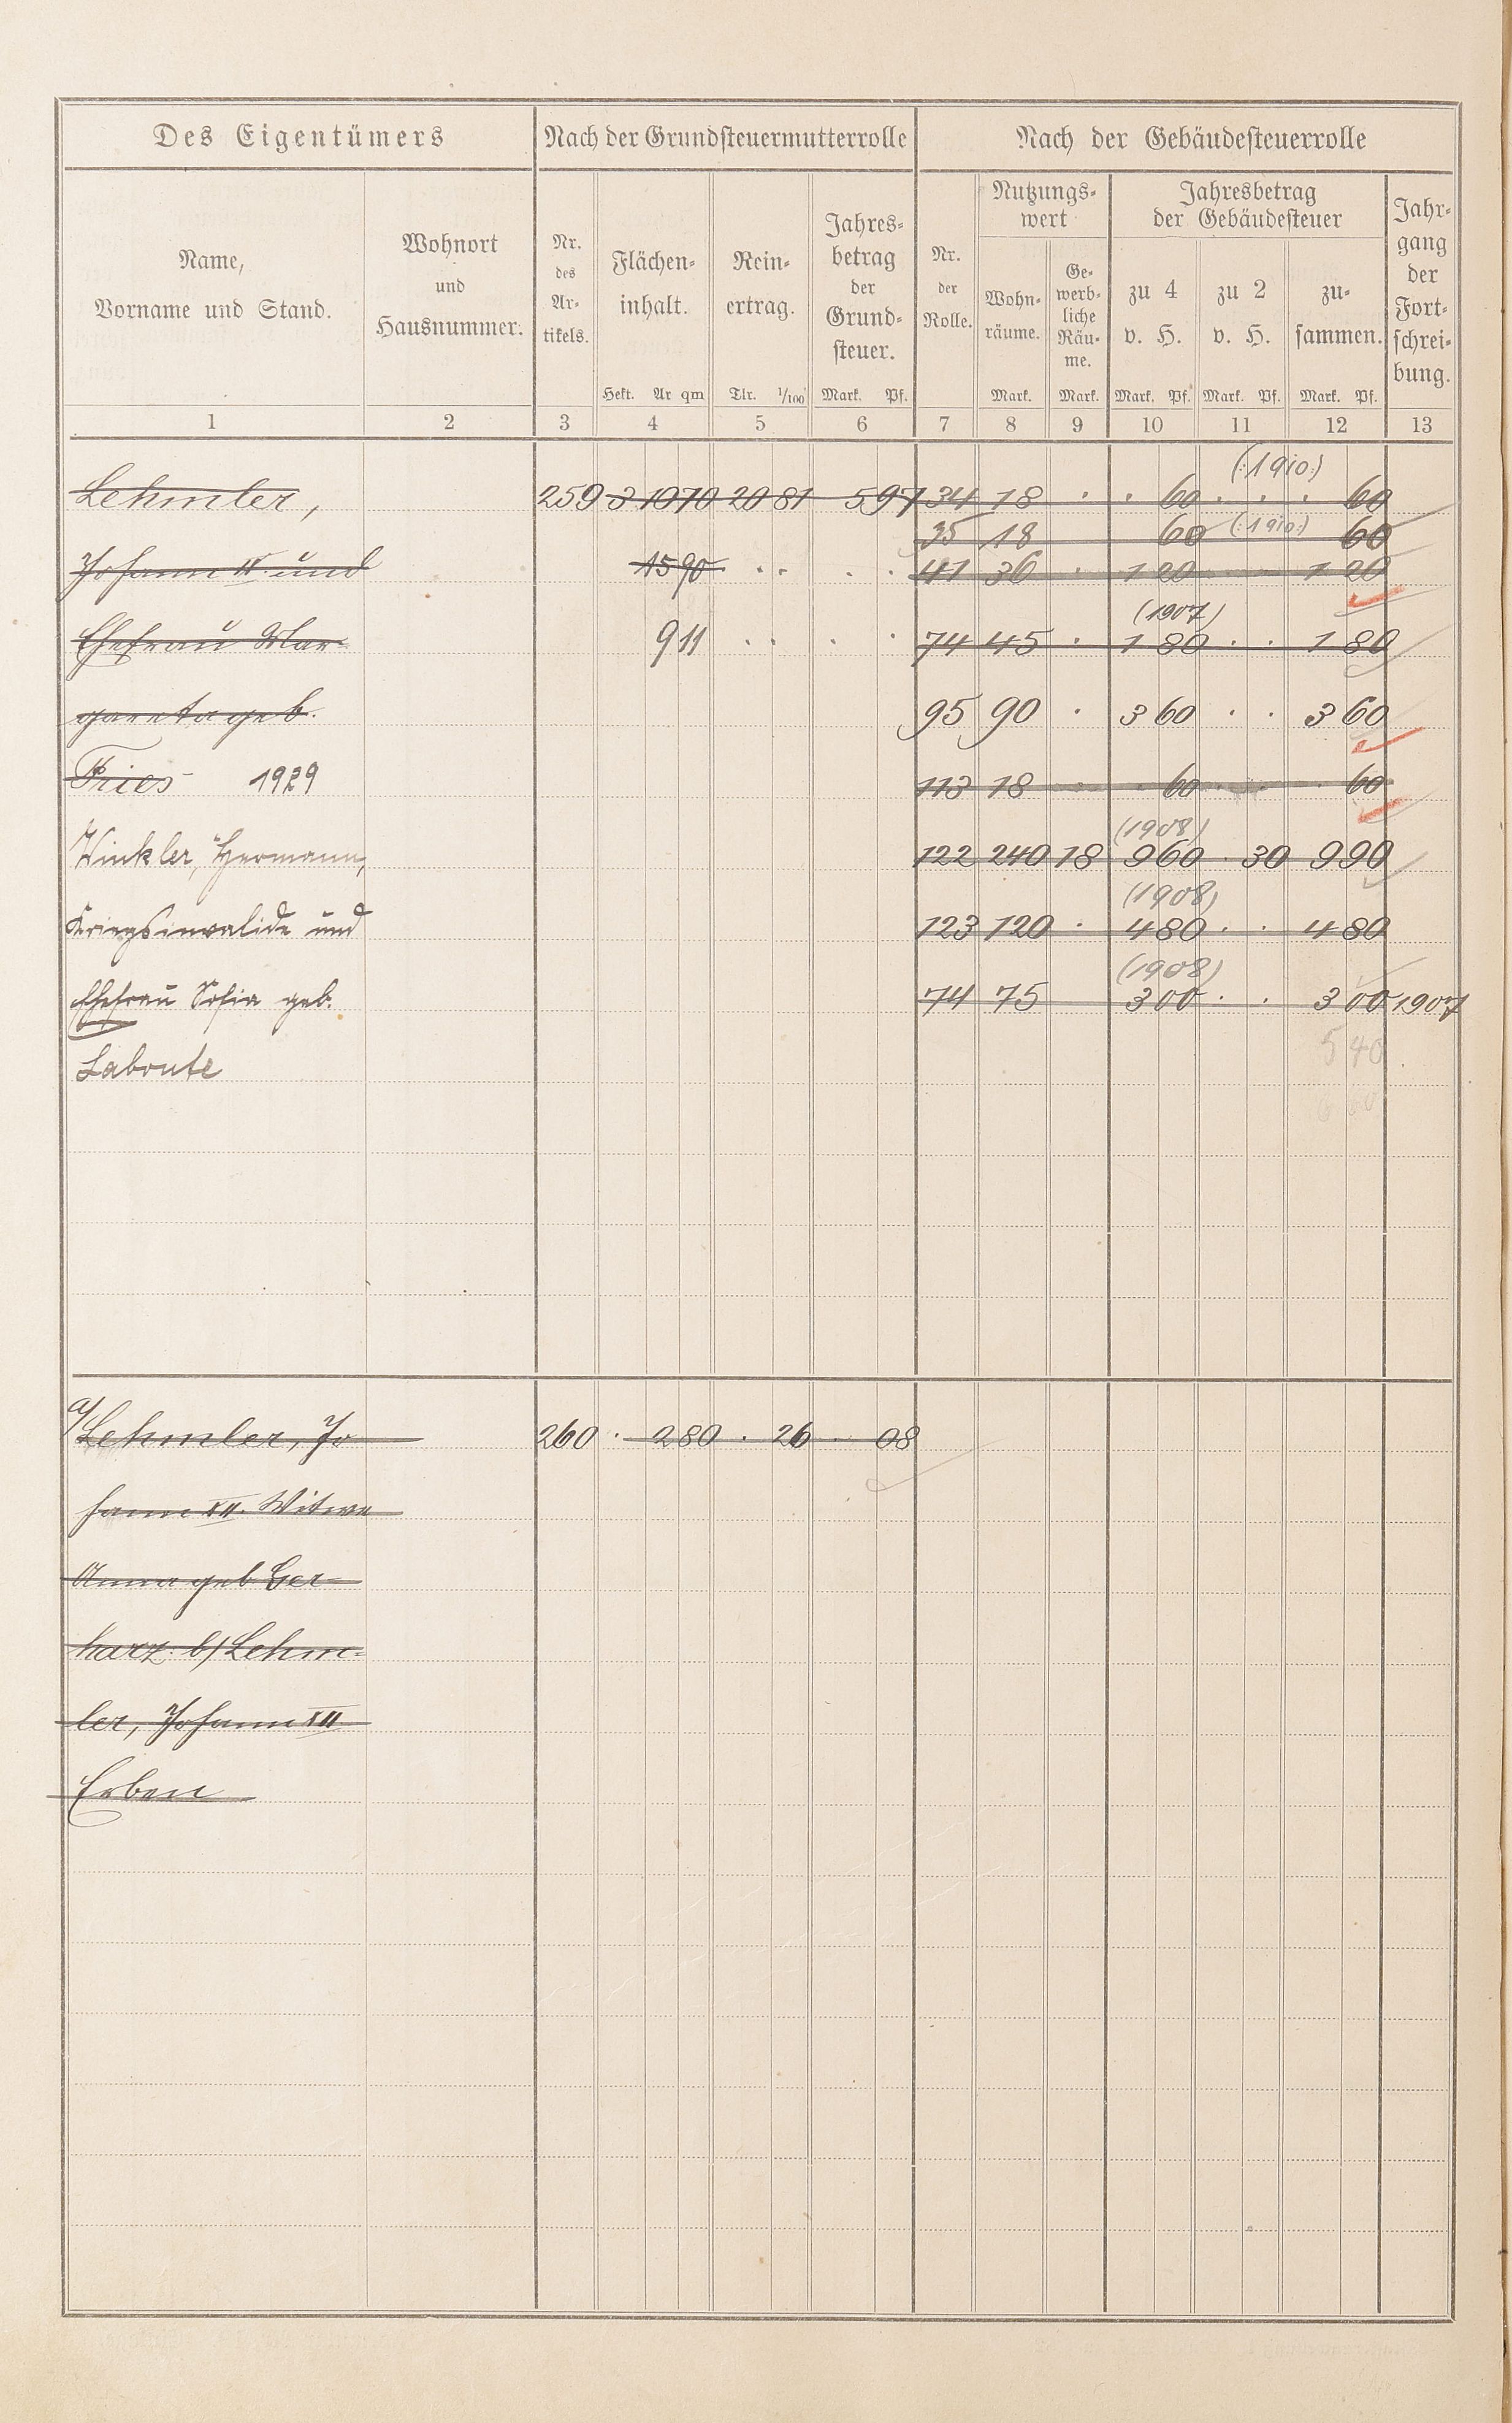 Des Eigentümers
Nach der Grundsteuermutterrolle
Nach der Gebäudesteuerrolle
Name,
Vorname und Stand.
Wohnort
und
Hausnummer.
Nr.
des
Ar-
tikels.
Flächen-
inhalt.
Hekt. Ar qm
Rein-
ertrag.
Tlr. 1/100
Jahres-
betrag
der
Grund-
steuer.
Mark. Pf.
Nr.
der
Rolle.
Nutzungs-
wert
Wohn-
räume.
Mark.
Ge-
werb-
liche
Räu-
me.
Mark.
Jahresbetrag
der Gebäudesteuer
zu 4
v. H.
Mark. Pf.
zu 2
v. H.
Mark. Pf.
zu-
sammen.
Mark. Pf.
Jahr-
gang
der
Fort-
schrei-
bung.
1 2 3 4 5 6 7 8 9 10 11 12 13
(:1910:)
Lehmler, 259 3 10 70 20 81 5 97 34 18 . . 60 . . . 60
35 18 60 (:1910:) 60
Johann IV und 15 90 . . . . 41 36 . 1 20 1 20
(1907)
Ehefrau Mar- 9 11 . . . . 74 45 . 1 80 . . 1 80
gareta geb. 95 90 . 3 60 . . 3 60
Fries 1929 113 18 . 60 . 60
(1908)
Winkler, Hermann, 122 240 18 9 60 . 30 9 90
(1908)
Kriegsinvalide und 123 120 . 4 80 . . 4 80
(1908)
Ehefrau Sofia geb. 74 75 3 00 . . 3 00 1907
Laboute 5 40
a/ Lehmler, Jo 260 . 2 80 . 26 . 08
hann XII. Witwe
Anna geb Ger-
harz. b/ Lehm-
ler, Johann XII
Erben